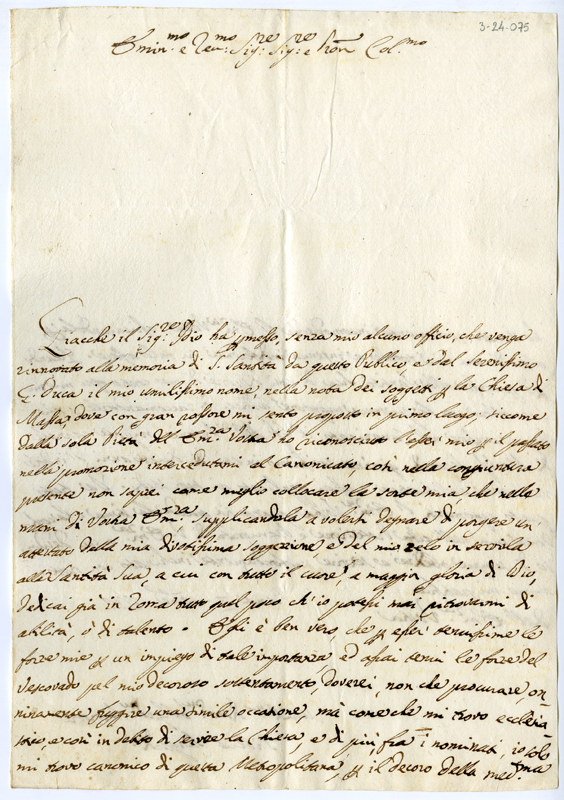 3-24-075
Emin.mo e Rev.mo Sig.re Sig.re e Pron Col.mo
Giacche il Sig.re Idio ha pmesso, senza mio alcuno officio, che venga
rinnovato alla memoria di S. Santità da questo Publico, e dal Serenissimo
G. Duca il mio umilissimo nome, nella nota dei soggetti p la Chiesa di
Massa, dove con gran rossore mi sento proposto in primo luogo, siccome
dalla sola Pietà del Em.ra Vostra ho riconosciuto l'esser mio p il passato
nella promozione intercedutami al Canonicato, così nella congiuntura
presente non saprei come meglio collocare la sorte mia che nelle
mani di Vostra Em.ra supplicandola a volersi degnare di porgere un
attestato della mia divotissima soggezione e del mio zelo in servirla
alla Santità Sua, a cui con tutto il cuore, a maggior gloria di Dio,
dedicai già in Roma tutto quel poco ch'io potessi mai ritrovarmi di
abilità, ò di talento. Egli è ben vero che p esser tenuissime le
forze mie p un impiego di tale importanza ed assai tenui le forze del
Vescovado pel mio decoroso sostentamento, doverei, non che procurare, on
ninamente fuggire una simile occasione, mà come che mi trovo ecclesia
stico, e così in debito di servire la Chiesa, e di più fra i nominati, io solo
mi trovo canonico di questa Metropolitana, p il decoro della med.ma